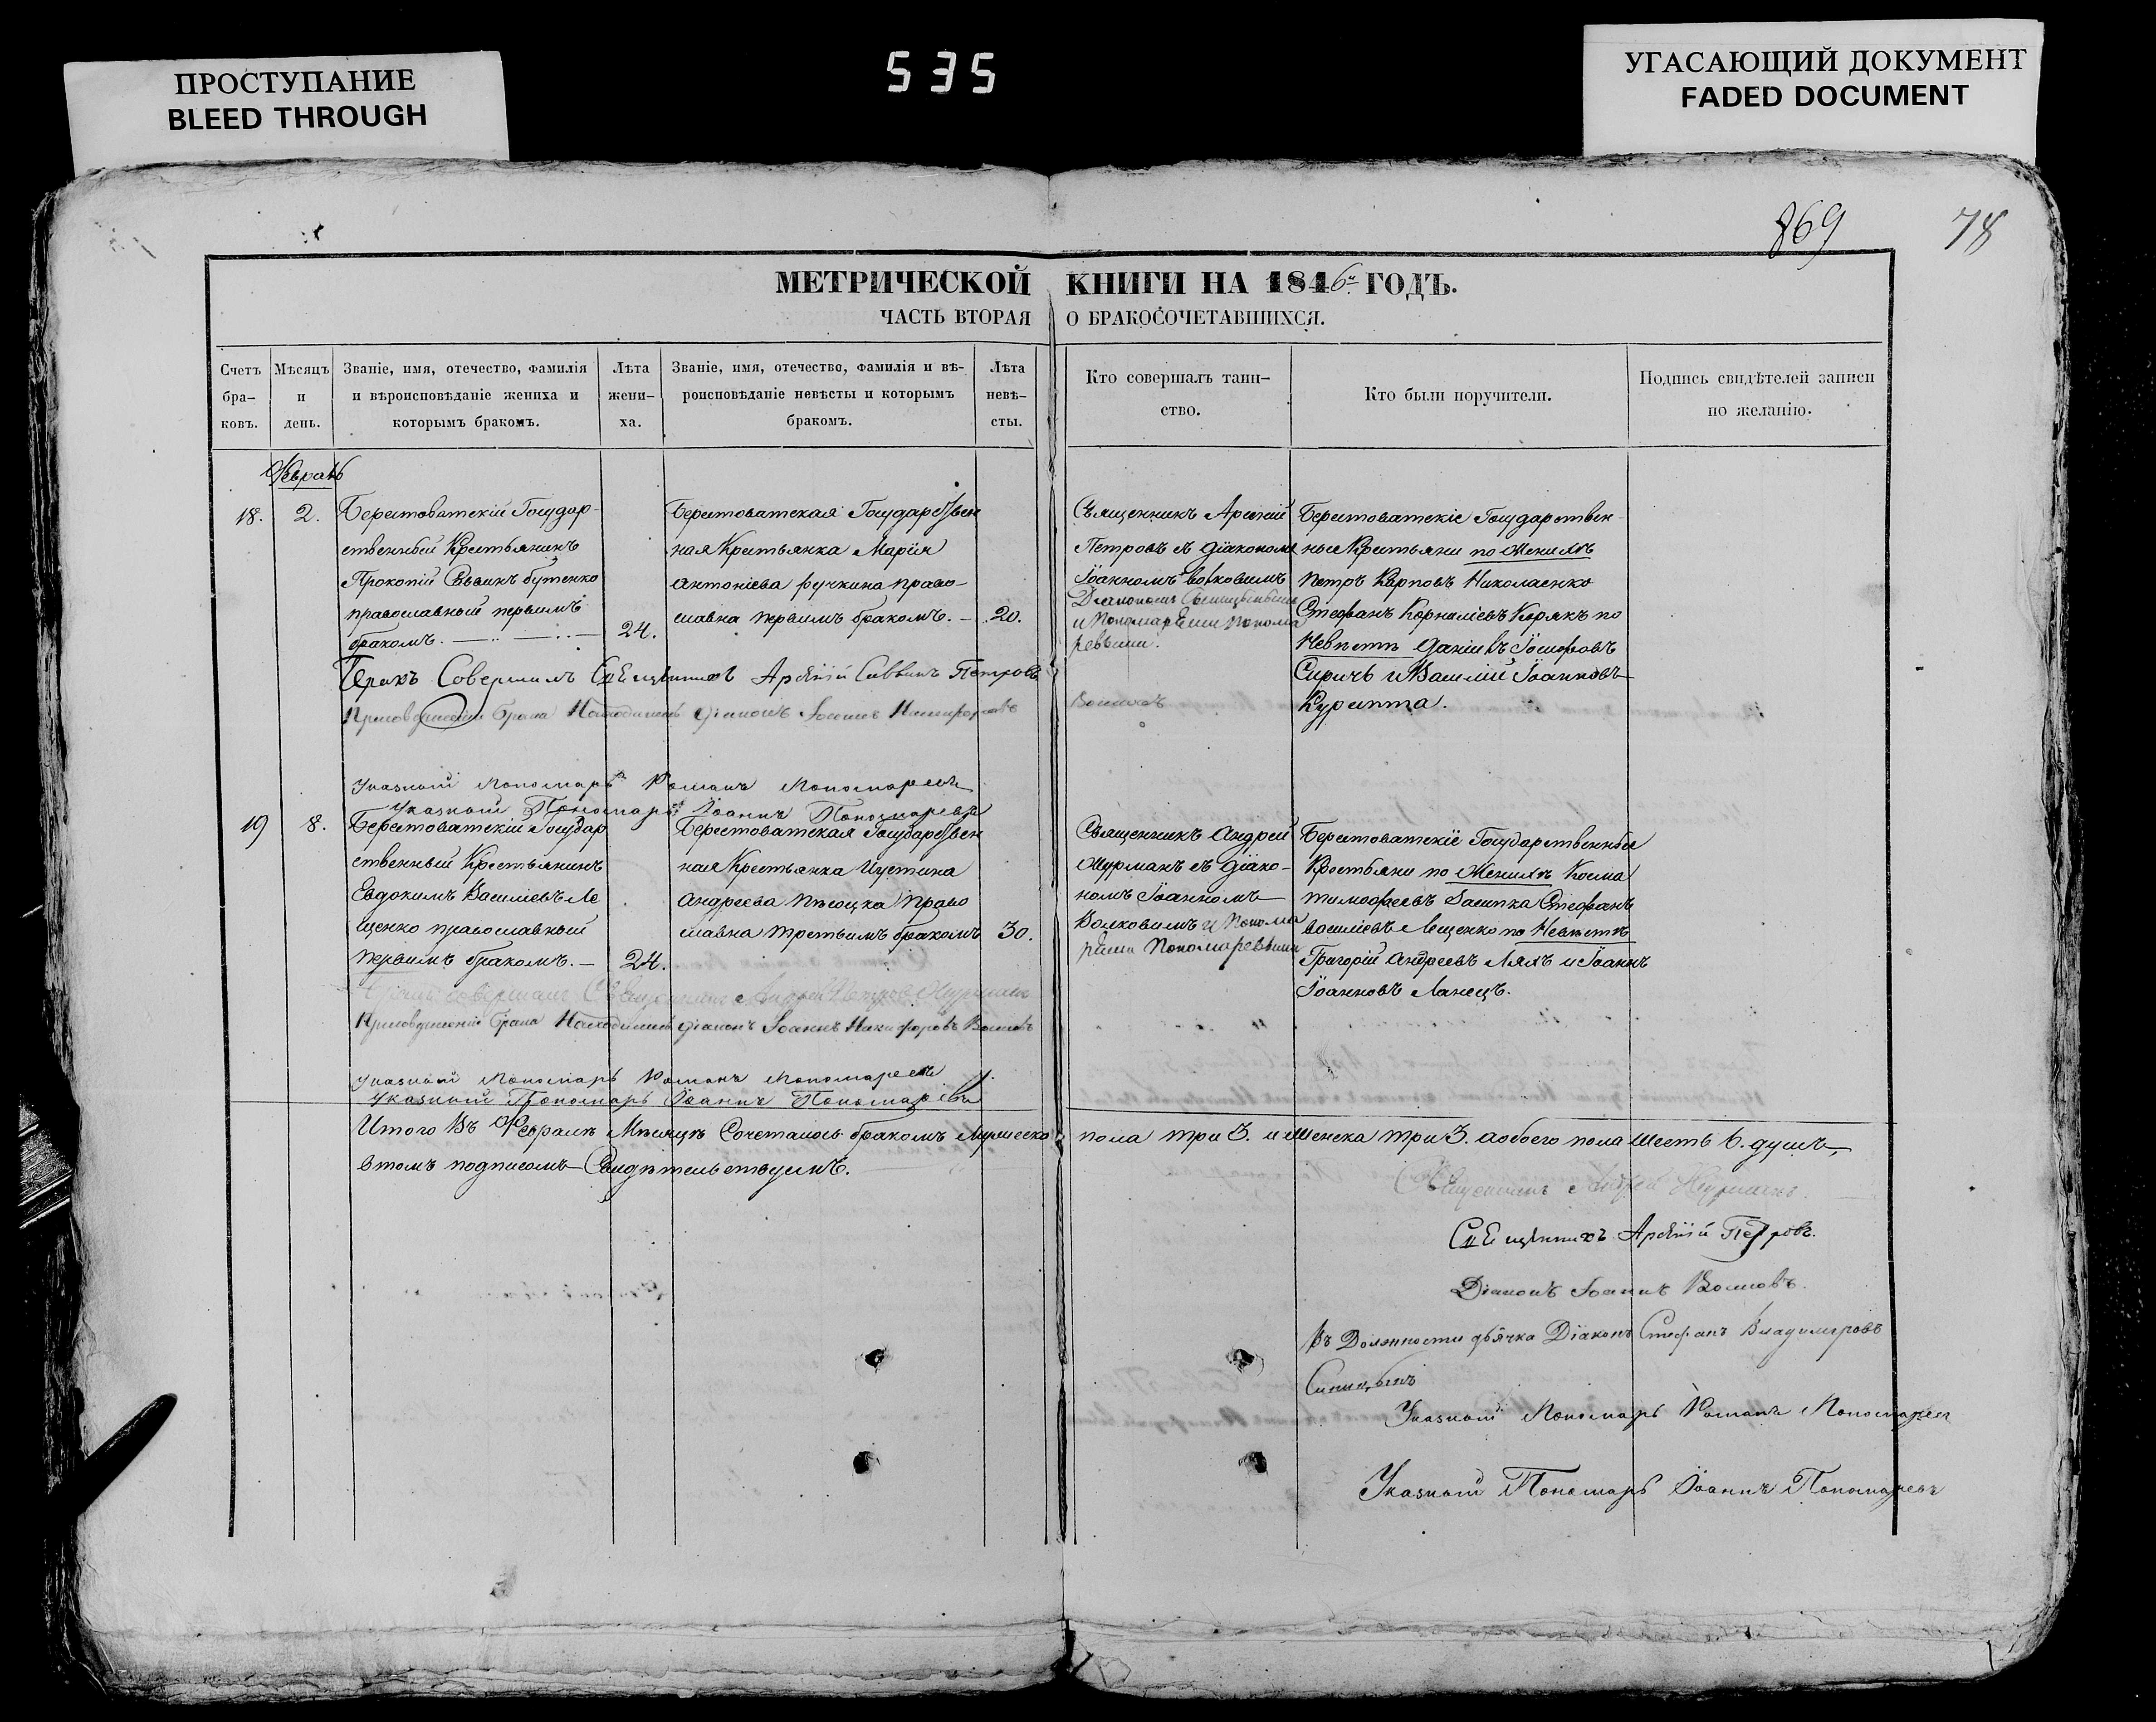 ПРОСТУПАНИЕ
BLEED THROUGH
535
УГАСАЮЩИЙ ДОКУМЕНТ
FADED DOCUMENT
869
78
МЕТРИЧЕСКОЙ КНИГИ НА 1846й ГОДЪ.
ЧАСТЬ ВТОРАЯ О БРАКОСОЧЕТАВШИХСЯ.
Счетъ
бра-
ковъ.
Мѣсяцъ
и
день.
Званіе, имя, отечество, фамилія
и вѣроисповѣданіе жениха и
которымъ бракомъ.
Лѣта
жени-
ха.
Званіе, имя, отечество, фамилія и вѣ-
роисповѣданіе невѣсты и которымъ
бракомъ.
Лѣта
невѣ-
сты.
Кто совершалъ таин-
ство.
Кто были поручители.
Подпись свидѣтелей записи
по желанію.
Февраль
18.
2.
Берестоватскій Государ-
ственный Крестьянинъ
Прокопій Саввинъ бутенко
православный первымъ
бракомъ.
24.
Берестоватская Государствен
ная Крестьянка Марія
антоніева ручкина право-
славна первымъ бракомъ.
20.
Священникъ Арсеній
Петровъ съ Діакономъ
Іоанномъ волковымъ
Діакономъ Синицынымъ
и Пономарями Понома
ревыми.
Берестоватскіе Государствен-
ные Крестьяни по Женихѣ
петръ Карповъ Николаенко
Стефанъ Корниліевъ Корякъ по
Невѣстѣ Даніилъ Іосифовъ
Сиричъ и Василій Іоанновъ
Курипта.
Бракъ Совершилъ Священникъ Арсеній Саввинъ Петровъ
При совершеніи брака Находился діаконъ Іоаннъ Никифоровъ Волковъ
Указный Пономарь Романъ Пономаревъ
Указный Пономарь Іоаннъ Пономаревъ
19
8.
Берестоватскій Государ
ственный Крестьянинъ
Евдокимъ Василіевъ Ле
щенко православный
первымъ бракомъ.
24.
Берестоватская Государствен
ная Крестьянка Иустина
Андреева Право
славна третьимъ бракомъ
30.
Священникъ Андрей
Журманъ съ Діако-
номъ Іоанномъ
Волковымъ и Понома
рями Пономаревыми
Берестоватскіе Государственныя
Крестьяни по Женихѣ Косма
тимофеевъ Засипка Стефанъ
василіевъ Лещенко по Невѣстѣ
Григорій Андреевъ Ляхъ и Іоаннъ
Іоанновъ Ланецъ.
Бракъ совершалъ Священникъ Андрей Петровъ Журманъ
При совершеніи брака Находился діаконъ Іоаннъ Никифоровъ Волковъ
Указный Пономарь Романъ Пономаревъ
Указный Пономарь Іоаннъ Пономаревъ
Итого Въ Февралѣ Мѣсяцѣ Сочеталось бракомъ Мужеска пола три 3. и женска три 3. а обоего пола шесть 6. душъ,
втомъ подписомъ Свидѣтельствуимъ.
Священникъ Андрей Журманъ.
Священникъ Арсеній Петровъ.
Діаконъ Іоаннъ Волковъ.
Въ Должности дьячка Діаконъ Стефанъ Владимировъ
Синицынъ
Указный Пономарь Романъ Пономаревъ
Указный Пономарь Іоаннъ Пономаревъ